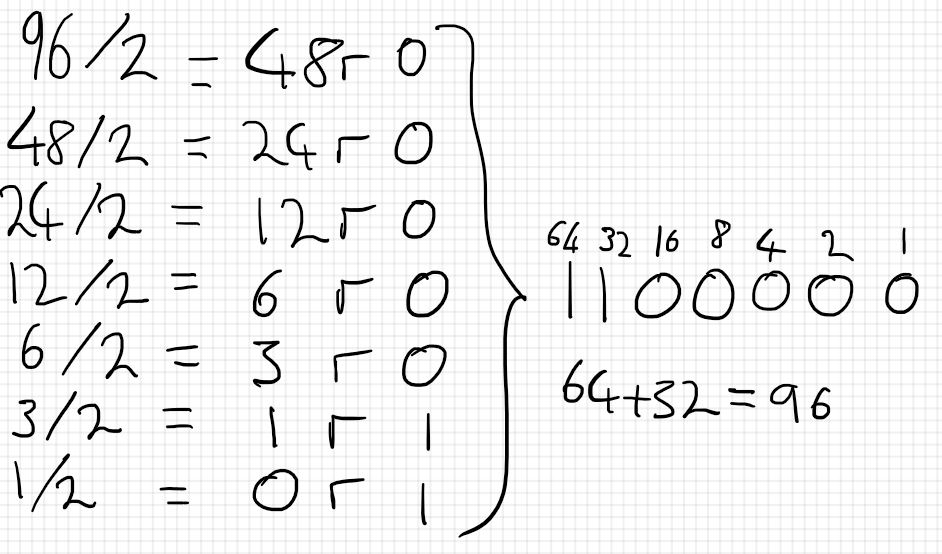 96/2 = 48 r 0
48/2 = 24 r 0
24/2 = 12 r 0
12/2 = 6 r 0
6/2 = 3 r 0
3/2 = 1 r 1
1/2 = 0 r 1
64 32 16 8 4 2 1
1 1 0 0 0 0 0
64+32=96